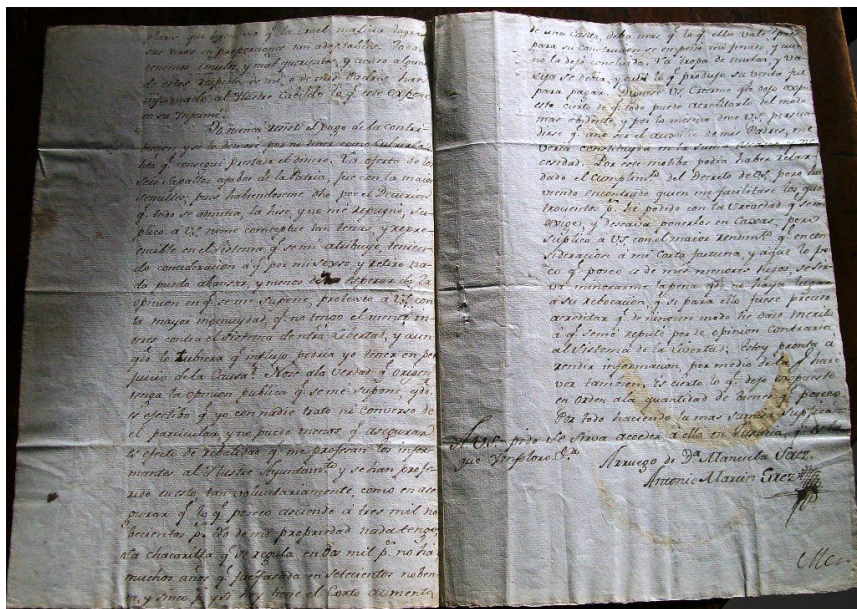 sus miras en proporciones tan adaptables. Todos
tenemos emulos, y mal querientes, y acaso alguno
de estos
informado al Ilustre Cabildo lo qᵉ este expone
en su Informe.
Yo nunca resistí el pago de la contri-
bucion, y si lo demoré, fue no tener como cubrirla
hta qᵉ conseguí prestado el dinero. La oferta de los
seis Zapatos afabor de la Patria, fue con la maior
sencilles; pues habiendoseme dho por el Decurion
qᵉ todo se admitia, la hise, y no me repugnó, Su-
plico a VS. no me conceptue tan tenas, y repren-
cible en el Sistema qᵉ se mi atribuye, teniendo
do consideracion a qᵉ por mi sexso, y retiro na-
da puedo abansar, y menos disperar de la
opinion en qᵉ se me Supone, protexto a VS. con
la mayor ingenuidad, qᵉ no tengo el menor in-
teres contra el Sistema de ntra Libertad, y aun
qdo lo tubiera qᵉ influjo podia yo tener en per
juicio de la Causa? Nose ala verdad qᵉ origen
tenga la opinion publica qᵉ se me supone, qdo
es efectibo qᵉ yo con nadie trato ni converso de
el particular, y no puedo menos qᵉ asegurar
es efecto de rebalidad qᵉ me profesan los infor-
mantes al Ilustre Ayuntamᵗᵒ y se han profe-
rido en esto, tan voluntariamente como en ase
gurar qᵉ lo qᵉ poseo asciende á tres mil no
becientos pˢ qdo de mi propriedad nada tengo,
La chacarilla qᵉ se regula en dos mil pˢ no ha
muchos años qᵉ fue tasada en setecientos noben-
ta, y sinco pˢ y si hoy tiene el Corto aumento
de una Casita, debo mas qᵉ lo qᵉ ella vale pues
para su construcion se empeñó mi finado, y aun
no la dejó concluida. La tropa de mulas, y va-
sija se debia, y asi lo qᵉ produjo su venta fue
para pagar. Dignese VS. creerme qᵉ lo dejo exp-
esto cierto de qᵉ todo puedo acreditarlo del modo
mas ebidente, y por lo mesmo deve VS. persua-
dirse qᵉ a no ser el auxilio de mis Padres, me
veria constituida en la suma
cesidad. Por este motibo podia haber retar-
dado el cumplimᵗᵒ del Decreto de VS. pero ha
viendo encontrado quien me facilitase los qua
trocientos pˢ he podido con la vrecedad qᵉ se me
exige, y deseava ponerlos en Caxas, pero
suplico a VS. con el maior rendimᵗᵒ qᵉ en con-
sideracion á mi Corta fortuna, y aqᵉ lo po-
co qᵉ poseo es de mis menores hijos, se sir-
va minorarme la pena qdo no haya lugar
a su rebocacion, y si para ello fuese preciso
acreditar qᵉ de ningun modo he dado merito
á qᵉ se me repute por de opinion contraria
al Sistema de la libertad; Estoy pronta á
rendir informacion, por medio de la qᵉ haré
ver tambien, es cierto lo qᵉ dejo expuesto
en orden ala quantidad de bienes qᵉ poseo
Por todo haciendo la mas sumisa suplica
A VS. pido se sirva acceder á ella en Justicia, qᵉ es lo
que Ynploro &ᵃ
Arruego de Dᵃ Manuela Saez.
Antonio Martin Saez